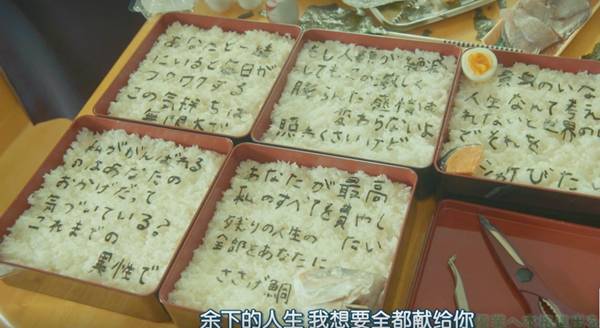 あなたと一緒
にいると毎日が
つのワクする
この気持ちは
無限大
もし人類が絶滅
してもこの激しく
膨らんだ感情は
変わらないよ
照れくさいけど
人生なんて考え
れないと世界の
でそれを
シャケびたい
私ががんばれる
のはあなたの
おかげだって
気づいている？
これまでの
異性で
あなたが最高
私のすべてを費やし
たい
残りの人生の
全部とあなたに
ささげ鯛
余下的人生 我想要全都献给你